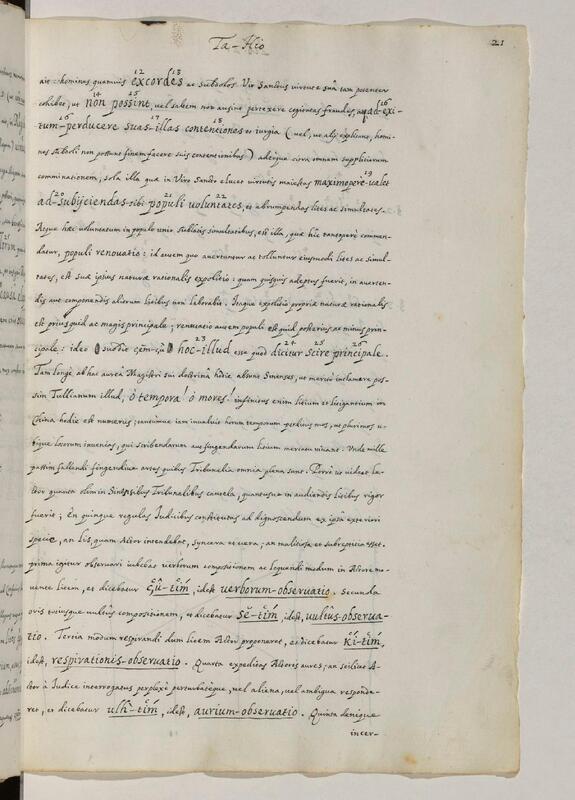 Ta-Hio
21
ait: homines quamvis excordes¹² ac subdolos¹³ Vir Sanctus virtute suâ tam potenter
cohibet, ut non¹⁴ possint, vel saltem non ausint pertexere cogitatas fraudes, aut ad-exi-¹⁶
tum-perducere¹⁶ suas-illas¹⁷ contentiones¹⁸ et iurgia (vel, ut alij explicant, homi-
nes subdoli non possunt finem facere suis contentionibus) adeoque citra omnem suppliciorum
comminationem, sola illa quæ in Viro Sancto elucet virtutis maiestas maximopere-valet¹⁹
ad-subijciendas-sibi²⁰ populi²¹ voluntates,²² et abrumpendas lites ac simultates.
Atque hæc voluntatum in populo unio sublatis simultatibus, est illa, quæ hîc tantoperè commen-
datur, populi renovatio: id autem quo avertuntur ac tolluntur eiusmodi lites ac simul-
tates, est suæ ipsius naturæ rationalis expolitio: quam quisquis adeptus fuerit, in averten-
dis aut componendis aliorum litibus non laborabit. Itaque expolitio propriæ naturæ rationalis
est prius quid ac magis principale; renovatio autem populi est quid posterius ac minus prin-
cipale: ideo subdit çem-çu hoc-illud²³ esse quod dicitur²⁴ scire²⁵ principale.²⁶
Tam longè ab hac aurea Magistri sui doctrina hodie absunt Sinenses, ut meritò inclamare pos-
sim Tullianum illud, ô tempora! ô mores! infinitus enim litium et litigantium in
China hodie est numerus; tantùmque iam invaluit horum temporum perditus mos, ut plurimos u-
bique locorum invenias, qui scribendarum aut fingendarum litium mercatu vivant. Unde mille
passim fallendi fingendique artes quibus Tribunalia omnia plena sunt. Porrò ut videat Le-
ctor quanta olim in Sinensibus Tribunalibus cautela, quantusue in audiendis litibus rigor
fuerit; En quinque regulas Iudicibus constitutas ad dignoscendum ex ipsa exteriori
specie, an lis, quam Actor intendebat, syncera et vera; an malitiosa et subreptitia esset.
prima igitur observari iubebat verborum compositionem ac loquendi modum in Actore mo-
vente litem, et dicebatur çû-tîm, idest verborum-observatio. Secunda
oris totiusque vultûs compositionem, et dicebatur sĕ-tîm, idest, vultûs-observa-
tio. Tertia modum respirandi dum litem Actor proponeret, et dicebatur Kí-tîm,
idest, respirationis-observatio. Quarta expeditas Actoris aures; an scilicet A-
ctor à Iudice interrogatus perplexè perturbatéque, vel aliena, vel ambigua responde-
ret, et dicebatur ulh-tîm, idest, aurium-observatio. Quinta denique
incer-